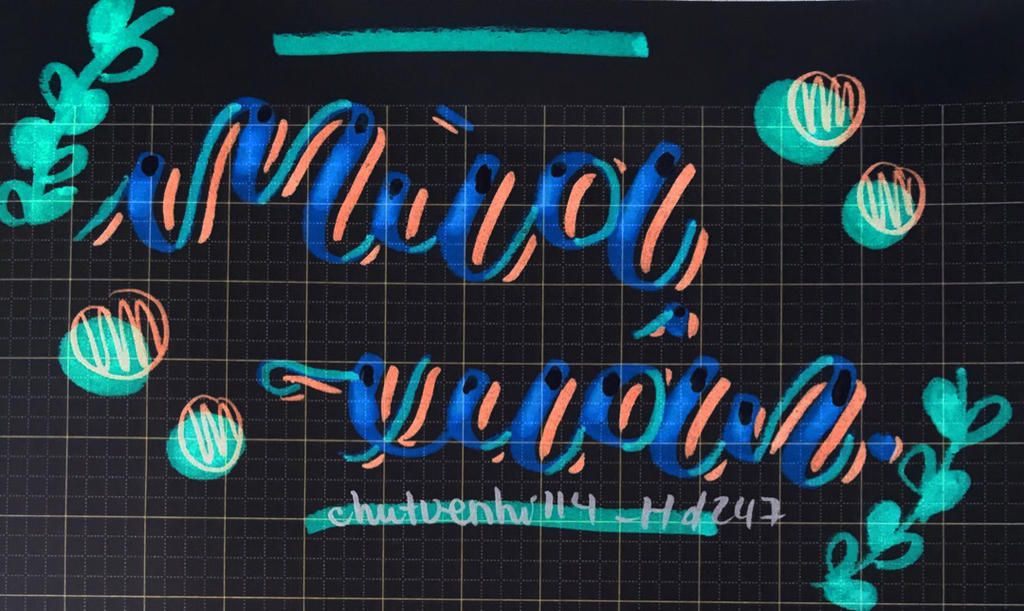 Mùa
xuân
chutvenhi114 _Hd247